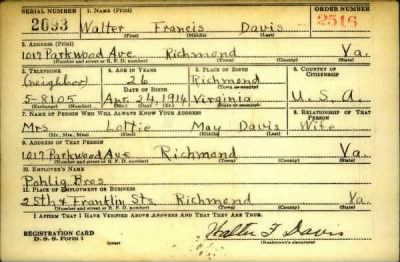 SERIAL NUMBER 1. NAME (Print) ORDER NUMBER
2093 Walter Francis Davis 2516
(First) (Middle) (Last)
2. ADDRESS (Print)
1017 Parkwood Ave Richmond Va.
(Number and street or R. F. D. number) (Town) (County) (State)
3. TELEPHONE 4. AGE IN YEARS 5. PLACE OF BIRTH 6. COUNTRY OF CITIZENSHIP
(neighbor) 26 Richmond
DATE OF BIRTH (Town or county)
5-8105 Apr. 24, 1914 Virginia U. S. A.
(Exchange) (Number) (Mo.) (Day) (Yr.) (State or country)
7. NAME OF PERSON WHO WILL ALWAYS KNOW YOUR ADDRESS 8. RELATIONSHIP OF THAT PERSON
Mrs Lottie May Davis Wife
(Mr., Mrs., Miss) (First) (Middle) (Last)
9. ADDRESS OF THAT PERSON
1017 Parkwood Ave Richmond Va.
(Number and street or R. F. D. number) (Town) (County) (State)
10. EMPLOYER'S NAME
Pohlig Bros
11. PLACE OF EMPLOYMENT OR BUSINESS
25th & Franklin Sts Richmond Va
(Number and street or R. F. D. number) (Town) (County) (State)
I AFFIRM THAT I HAVE VERIFIED ABOVE ANSWERS AND THAT THEY ARE TRUE.
REGISTRATION CARD
D. S. S. Form 1 Walter F Davis
(over) (Registrant's signature)